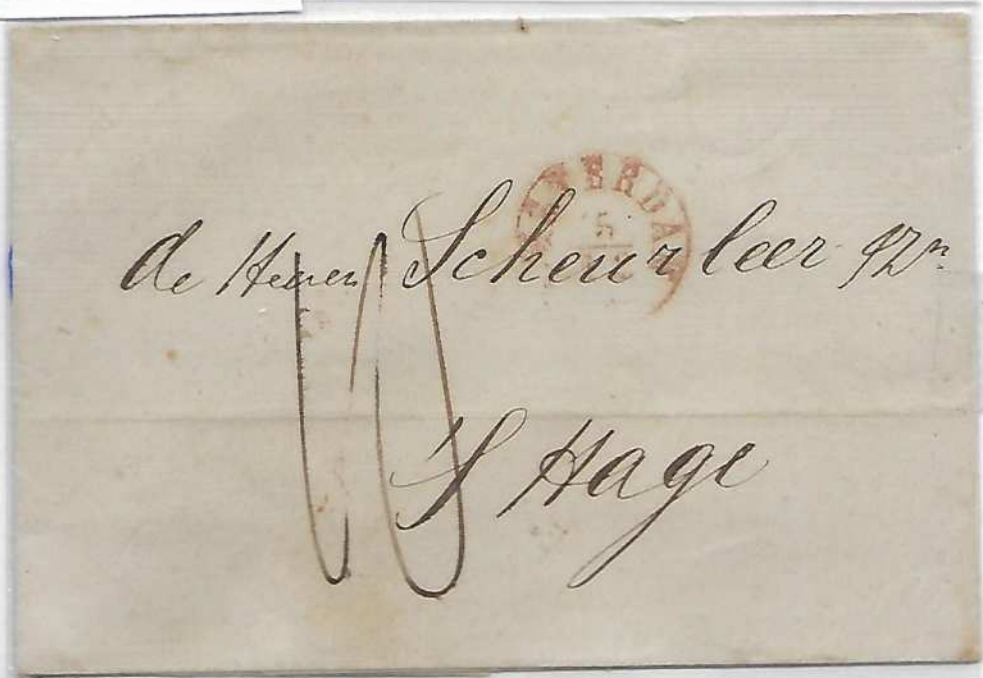 AMSTERDAM
5
de Heeren Scheurleer &Zn.
10
'S Hage